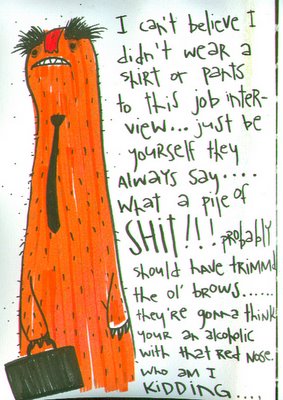 I can't believe I
didn't wear a
shirt or pants
to this job inter-
view... just be
yourself they
always say....
what a pile of
SHIT!!! probably
should have TRIMMD
the ol' brows......
they're gonna think
your an alcoholic
with that Red Nose.
who am I
KIDDING....